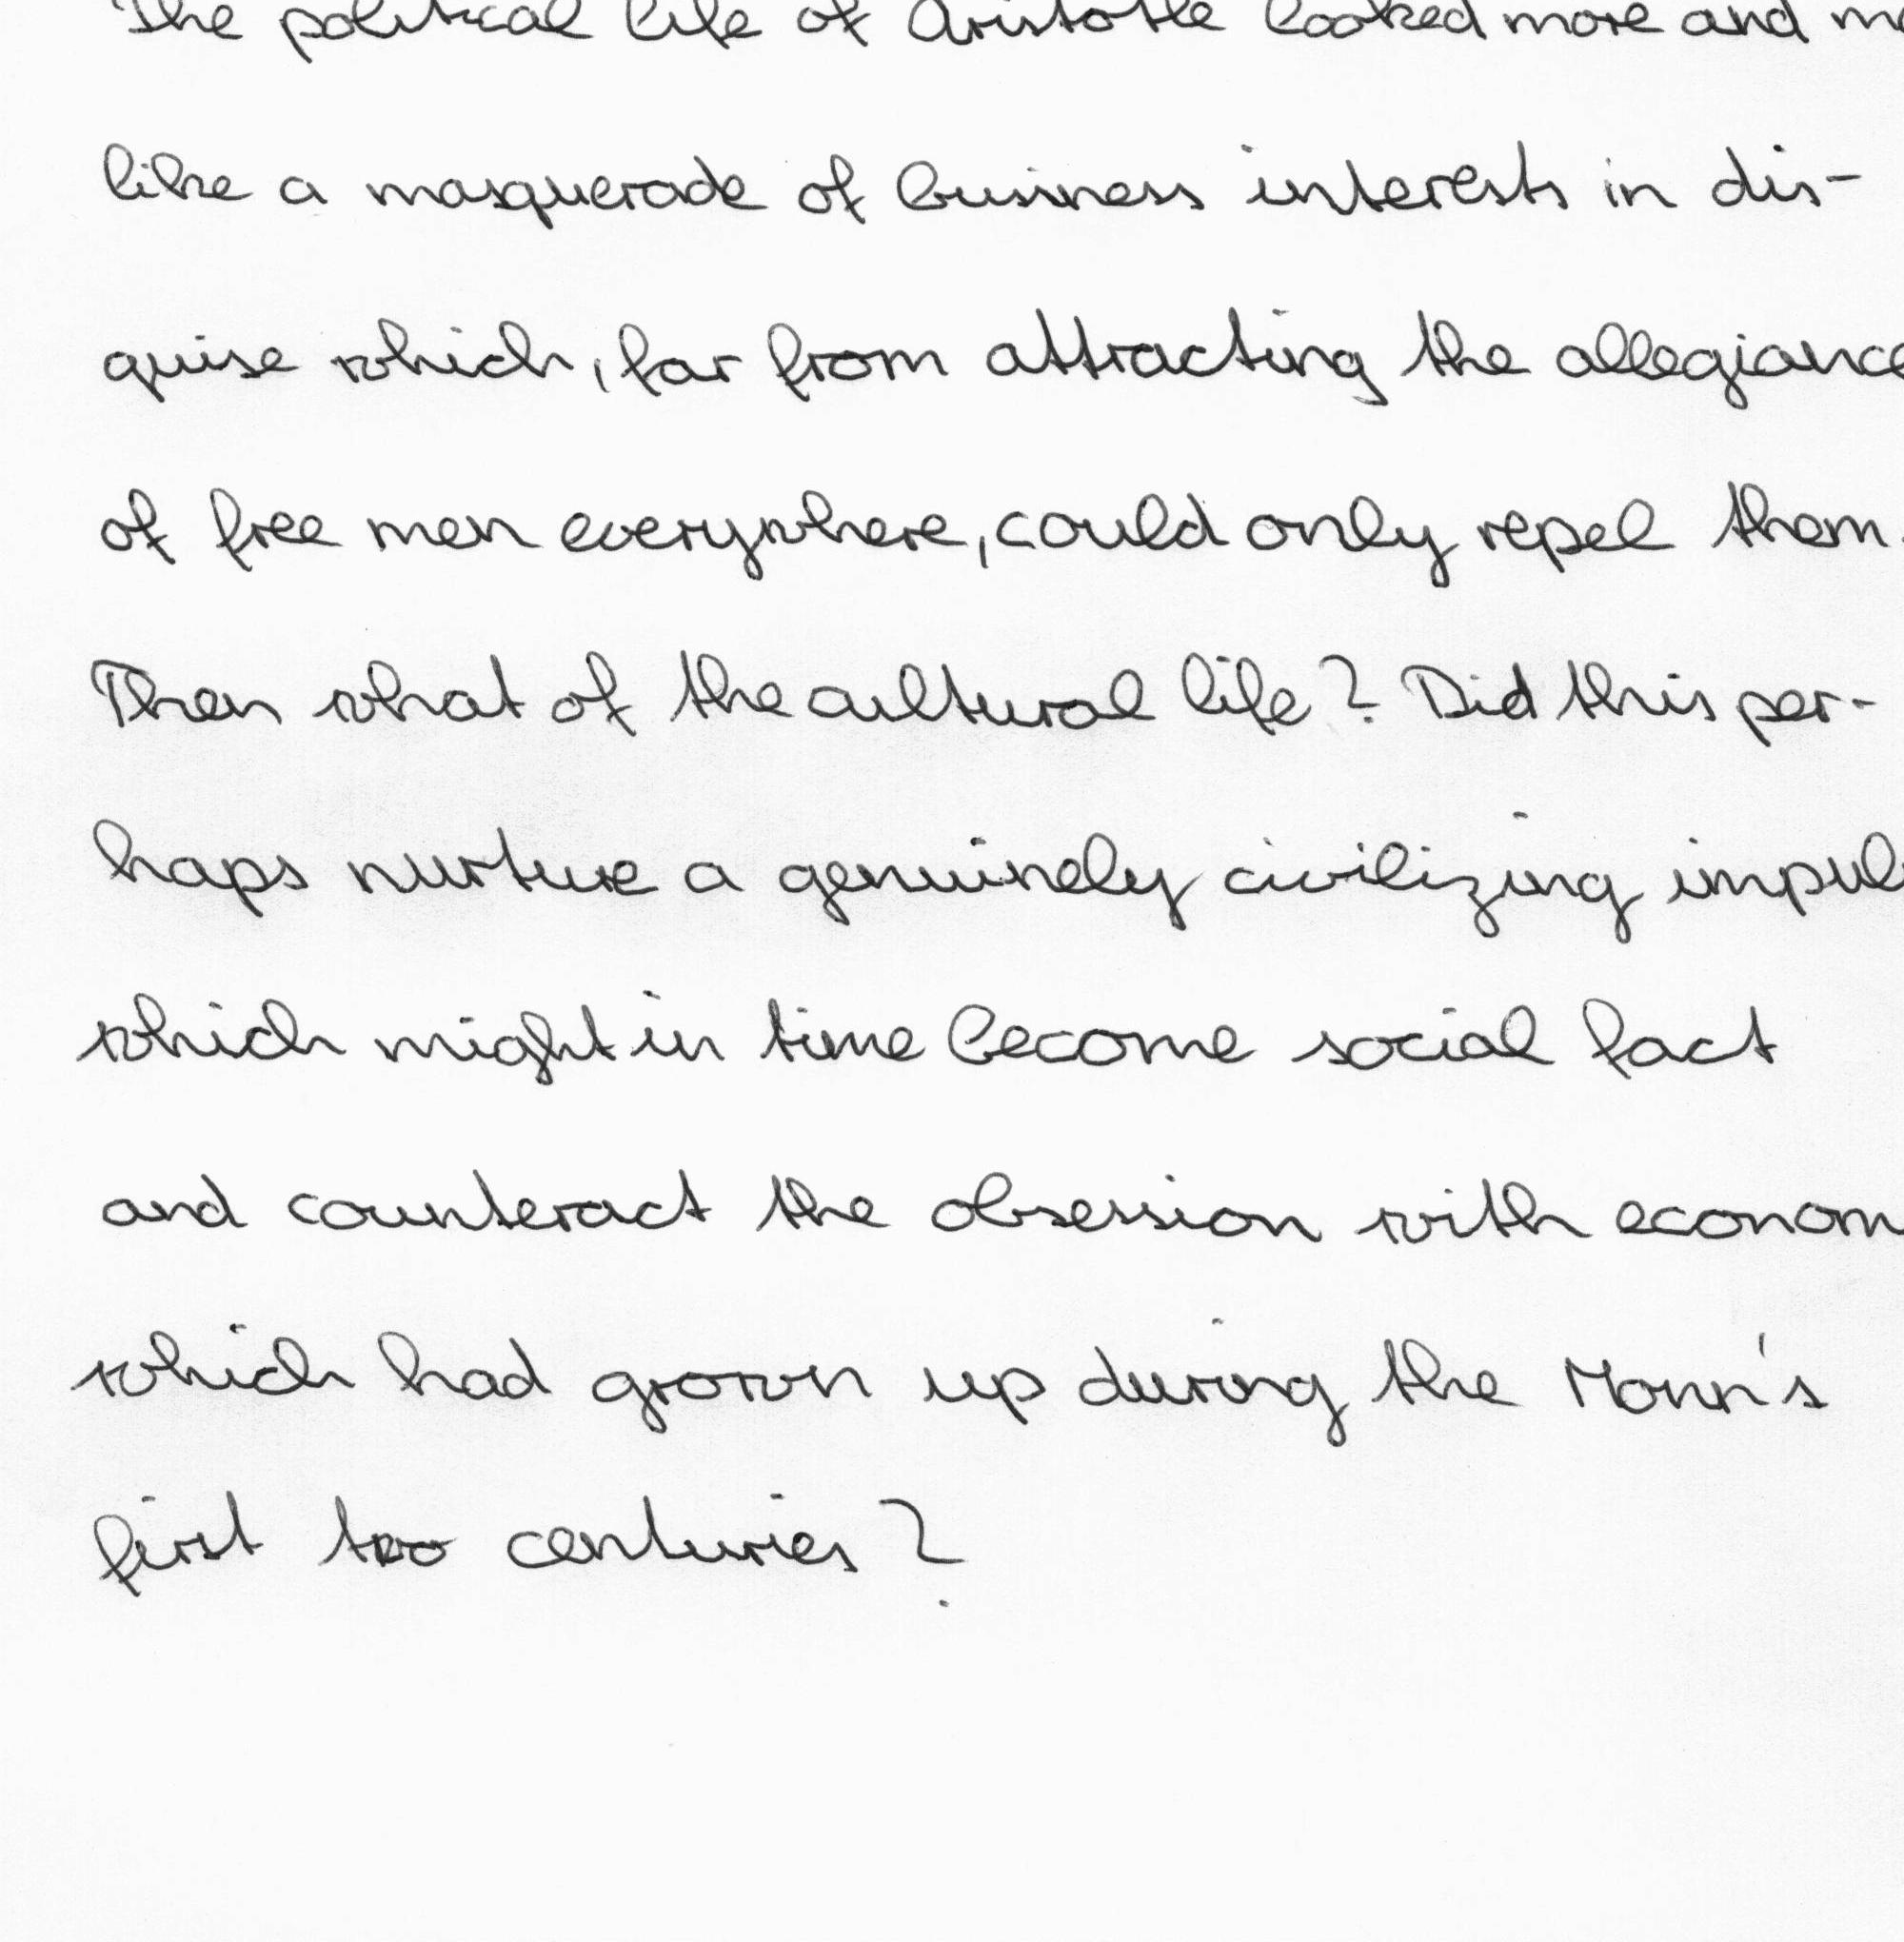 The political life of Aristotle looked more and
like a masquerade of business interests in dis-
guise which, far from attracting the allegiance
of free men everywhere, could only repel them.
Then what of the cultural life? Did this per-
haps nurture a genuinely civilizing
which might in time become social fact
and counteract the obsession with
which had grown up during the
first two centuries?